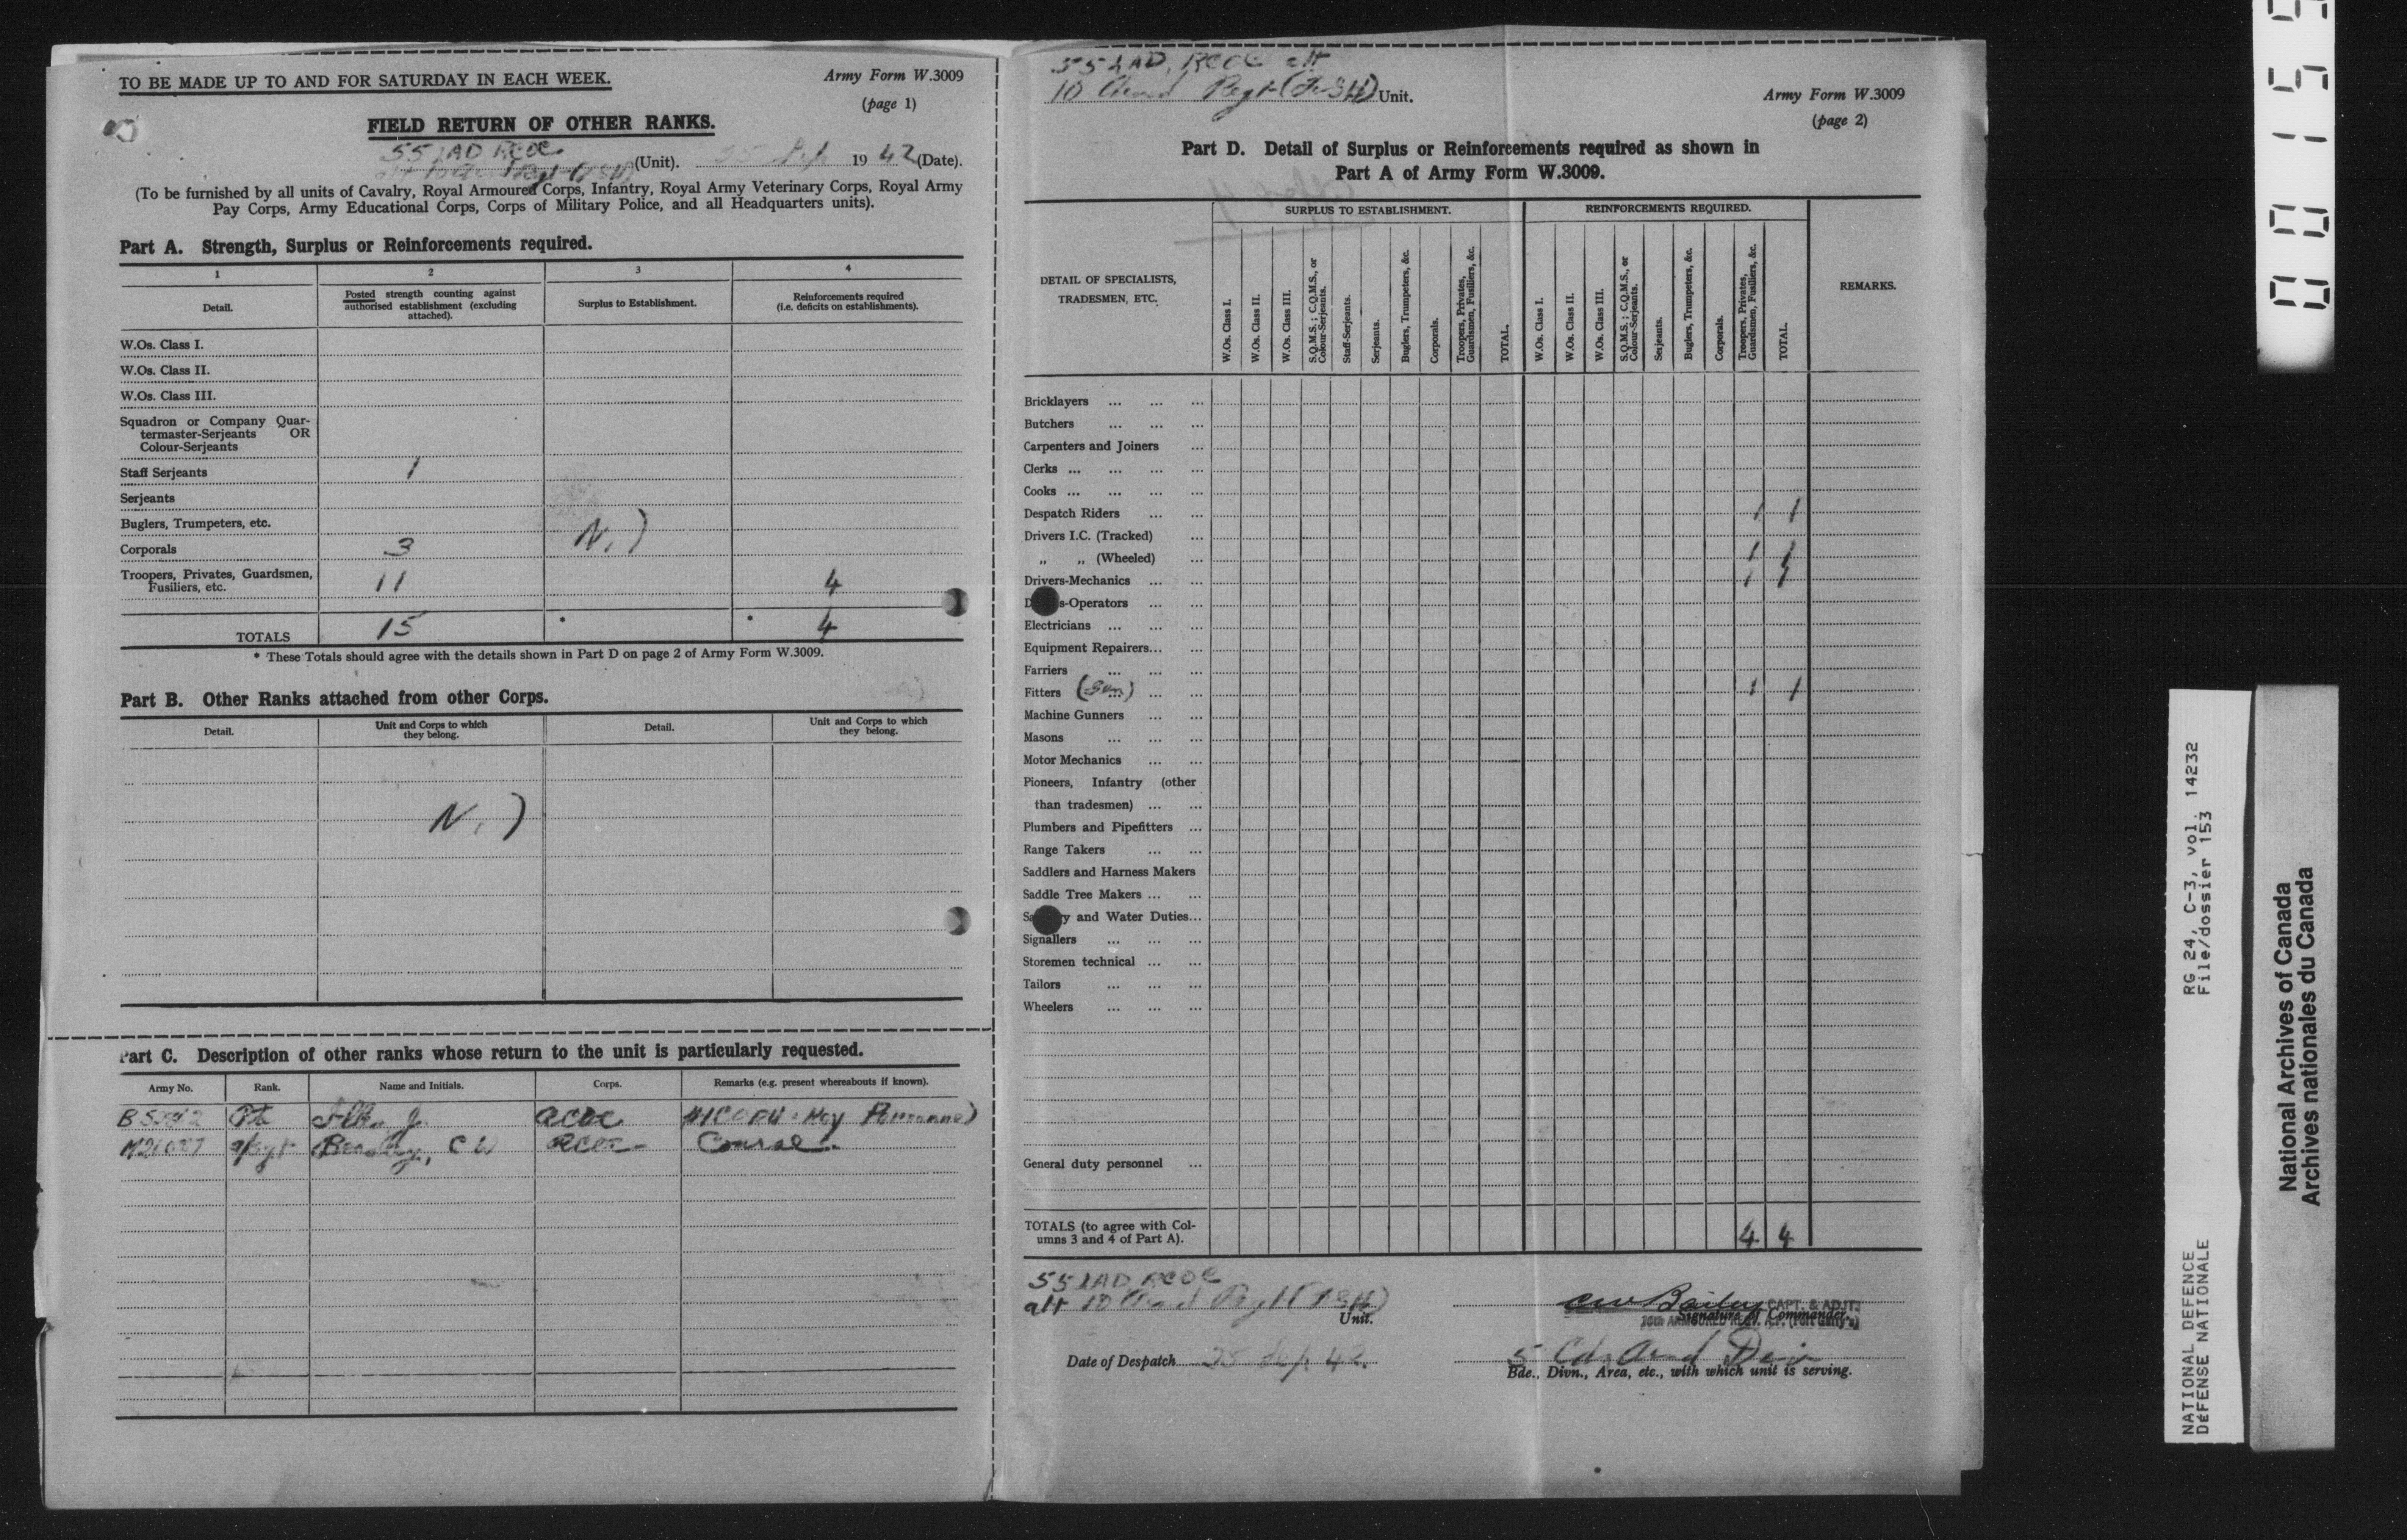 TO BE MADE UP TO AND FOR SATURDAY IN EACH WEEK.
Army Form W.3009
(page 1)
FIELD RETURN OF OTHER RANKS.
55 LAD RCOC
(Unit). 1942 (Date).
(To be furnished by all units of Cavalry, Royal Armoured Corps, Infantry, Royal Army Veterinary Corps, Royal Army
Pay Corps, Army Educational Corps, Corps of Military Police, and all Headquarters units).
Part A. Strength, Surplus or Reinforcements required.
1 2 3 4
Detail.
Posted strength counting against
authorised establishment (excluding
attached).
Surplus to Establishment.
Reinforcements required
(i.e. deficits on establishments).
W.Os. Class I.
W.Os. Class II.
W.Os. Class III.
Squadron or Company Quar-
termaster-Serjeants OR
Colour-Serjeants
Staff Serjeants 1
Serjeants
Buglers, Trumpeters, etc.
Nil
Corporals 3
Troopers, Privates, Guardsmen,
Fusiliers, etc. 11 4
TOTALS 15 * * 4
* These Totals should agree with the details shown in Part D on page 2 of Army Form W.3009.
Part B. Other Ranks attached from other Corps.
Detail.
Unit and Corps to which
they belong.
Detail.
Unit and Corps to which
they belong.
Nil
Part C. Description of other ranks whose return to the unit is particularly requested.
Army No. Rank. Name and Initials. Corps. Remarks (e.g. present whereabouts if known).
Pte J. RCOC Key Personnel
C W RCOC Course.
55 LAD, RCOC att
10 Armd Regt (FGH) Unit.
Army Form W.3009
(page 2)
Part D. Detail of Surplus or Reinforcements required as shown in
Part A of Army Form W.3009.
DETAIL OF SPECIALISTS,
TRADESMEN, ETC.
SURPLUS TO ESTABLISHMENT.
W.Os. Class I.
W.Os. Class II.
W.Os. Class III.
S.Q.M.S.; C.Q.M.S., or
Colour-Serjeants.
Staff-Serjeants.
Serjeants.
Buglers, Trumpeters, &c.
Corporals.
Troopers, Privates,
Guardsmen, Fusiliers, &c.
TOTAL.
REINFORCEMENTS REQUIRED.
W.Os. Class I.
W.Os. Class II.
W.Os. Class III.
S.Q.M.S.; C.Q.M.S., or
Colour-Serjeants.
Serjeants.
Buglers, Trumpeters, &c.
Corporals.
Troopers, Privates,
Guardsmen, Fusiliers, &c.
TOTAL.
REMARKS.
Bricklayers ... ... ...
Butchers ... ... ...
Carpenters and Joiners ...
Clerks ... ... ... ...
Cooks ... ... ... ...
Despatch Riders ... ... 1 1
Drivers I.C. (Tracked) ...
„ „ (Wheeled) ... 1 1
Drivers-Mechanics ... ... 1 1
s-Operators ... ...
Electricians ... ... ...
Equipment Repairers... ...
Farriers ... ... ...
Fitters ... ... ... 1 1
Machine Gunners ... ...
Masons ... ... ...
Motor Mechanics ... ...
Pioneers, Infantry (other
than tradesmen) ... ...
Plumbers and Pipefitters ...
Range Takers ... ...
Saddlers and Harness Makers
Saddle Tree Makers ... ...
Sa y and Water Duties...
Signallers ... ... ...
Storemen technical ... ...
Tailors ... ... ...
Wheelers ... ... ...
General duty personnel ...
TOTALS (to agree with Col-
umns 3 and 4 of Part A). 4 4
55 LAD RCOC
att 10 Armd Regt (FGH)
Unit.
CW Bailey CAPT. & ADJT.
Signature of Commander.
10th ARMOURED REGT. (Fort Garry's)
Date of Despatch 42.
5 Cdn Armd Div
Bde., Divn., Area, etc., with which unit is serving.
NATIONAL DEFENCE RG 24, C-3, vol. 14232
DÉFENSE NATIONALE File/dossier 153
National Archives of Canada
Archives nationales du Canada